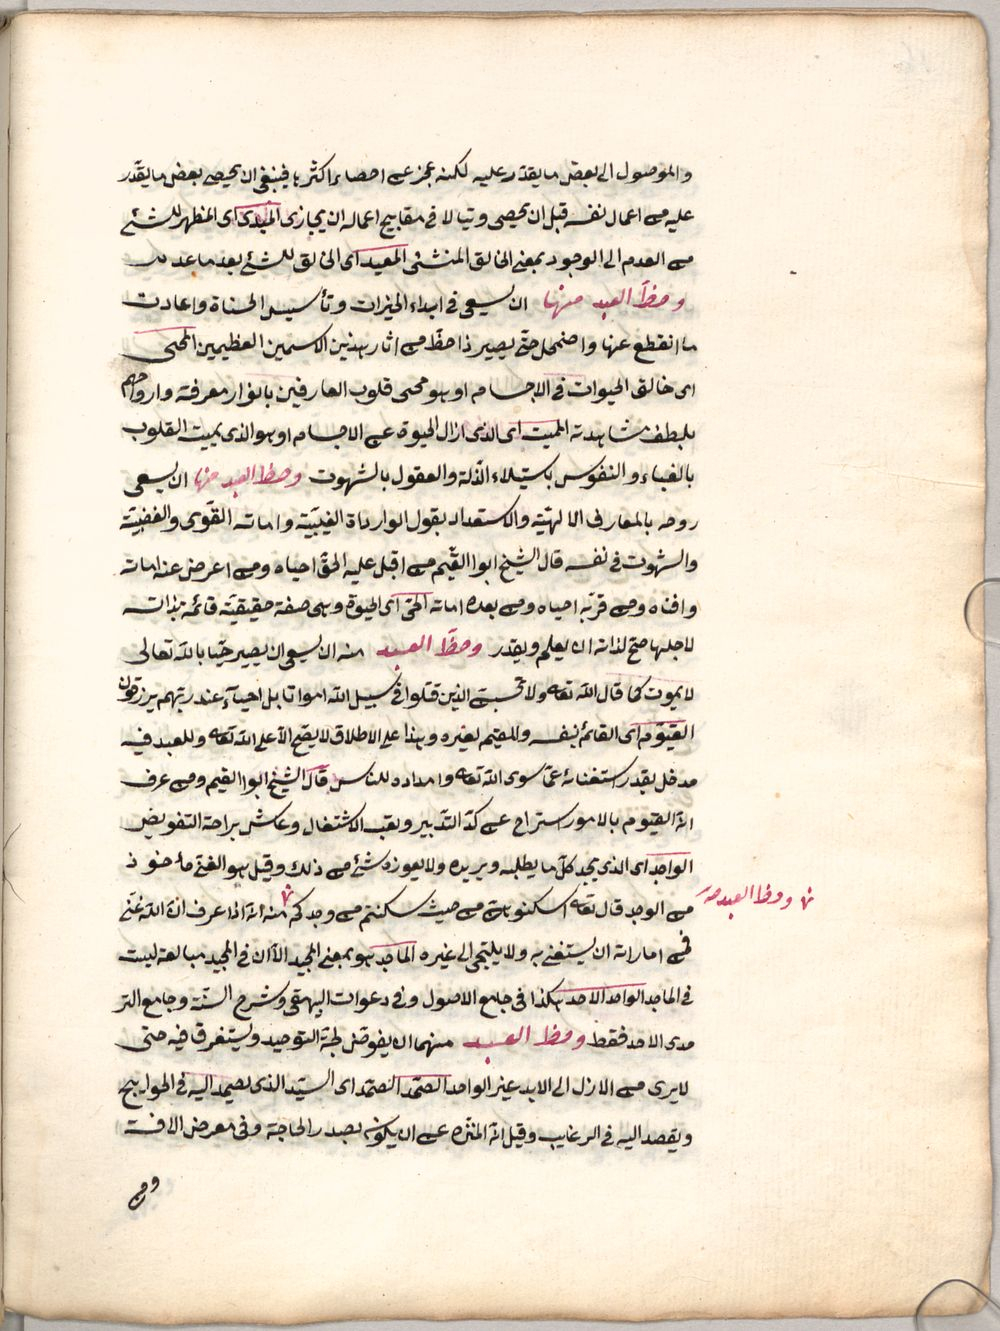 والموصول الى بعض ما يقدر عليه لكنه عجز عن احصاء اكثرها فينبغى ان يحصى بعض ما يقدر
عليه من اعمال نفسه قبل ان يحصى وتيالا فى مقابيح اعماله ان يجازى المبدئ اى المظهر للشئ
من العدم الى الوجود بمعنى الخالق المنشئ المعيد اى الخالق للشئ بعد ما عدمه
وحظ العبد منها ان يسعى فى ابداء الخيرات وتأسيس الحسناة واعادت
ما انقطع عنها واضمحل حتى يصير ذا حظ من اثار هذين الاسمين العظيمين المحيى
اى خالق الحيوات فى الاجسام او هو محيى قلوب العارفين بانوار معرفته وارواحهم
بلطف مشاهدته المميت اى الذى ازال الحيوة عن الاجسام او هو الذى يميت القلوب
بالغباء والنفوس باستيلاء الذلة والعقول بالشهوت وحظ العبد منها ان يسعى
روحه بالمعارف الالهية والاستعداد بقول الوارداة الغيبية واماتة القوى والغضبية
والشهوت فى نفسه قال الشيخ ابوا القيم من اقبل عليه الحق احياه ومن اعرض عنه اماته
وافناه ومن قربه احياه ومن بعده اماته الحى اى الحيوة وهى صفة حقيقية قائمة بذاته
لاجلها صح لذاته ان يعلم ويقدر وحظ العبد منه ان يسعى ان يصير حيا بالله تعالى
لا يموت كما قال الله تعه ولا تحسبن الذين قتلوا فى سبيل الله امواتا بل احياء عند ربهم يرزقون
القيوم اى القائم بنفسه والمقيم لغيره وهذا على الاطلاق لا يقع الا على الله تعه وللعبد فيه
مدخل بقدر استغنائه عما سوى الله تعه وامداده للناس قال الشيخ ابوا القيم ومن عرف
انه القيوم بالامور استراح عن كد التدبير وتعب الاشتغال وعاش براحة التفويض
الواجد اى الذى يجد كل ما يطلبه ويريده ولا يعوزه شئ من ذلك وقيل هو الغنى مأخوذ
من الوجد قال تعه اسكنوهن من حيث سكنتم من وجدكم منه انه اذا عرف ان الله غنى
وحظ العبد
فمن اماراته ان يستغنى به ولا يلتجى الى غيره الماجد هو بمعنى المجيد الا ان فى المجيد مبالغة ليست
فى الماجد الواحد الاحد هكذا فى جامع الاصول وفى دعوات البيهقى وشرح السنة وجامع التر
مدى الاحد فقط وحظ العبد منهما ان يغوص لجة التوحيد ويستغرق فيه حتى
لا يرى من الازل الى الابد غير الواحد الصمد الصمد اى السيد الذى يصمد اليه فى الحوايج
ويقصد اليه فى الرغايب وقيل انه المنزه عن ان يكون بصدر الحاجة وفى معرض الافت